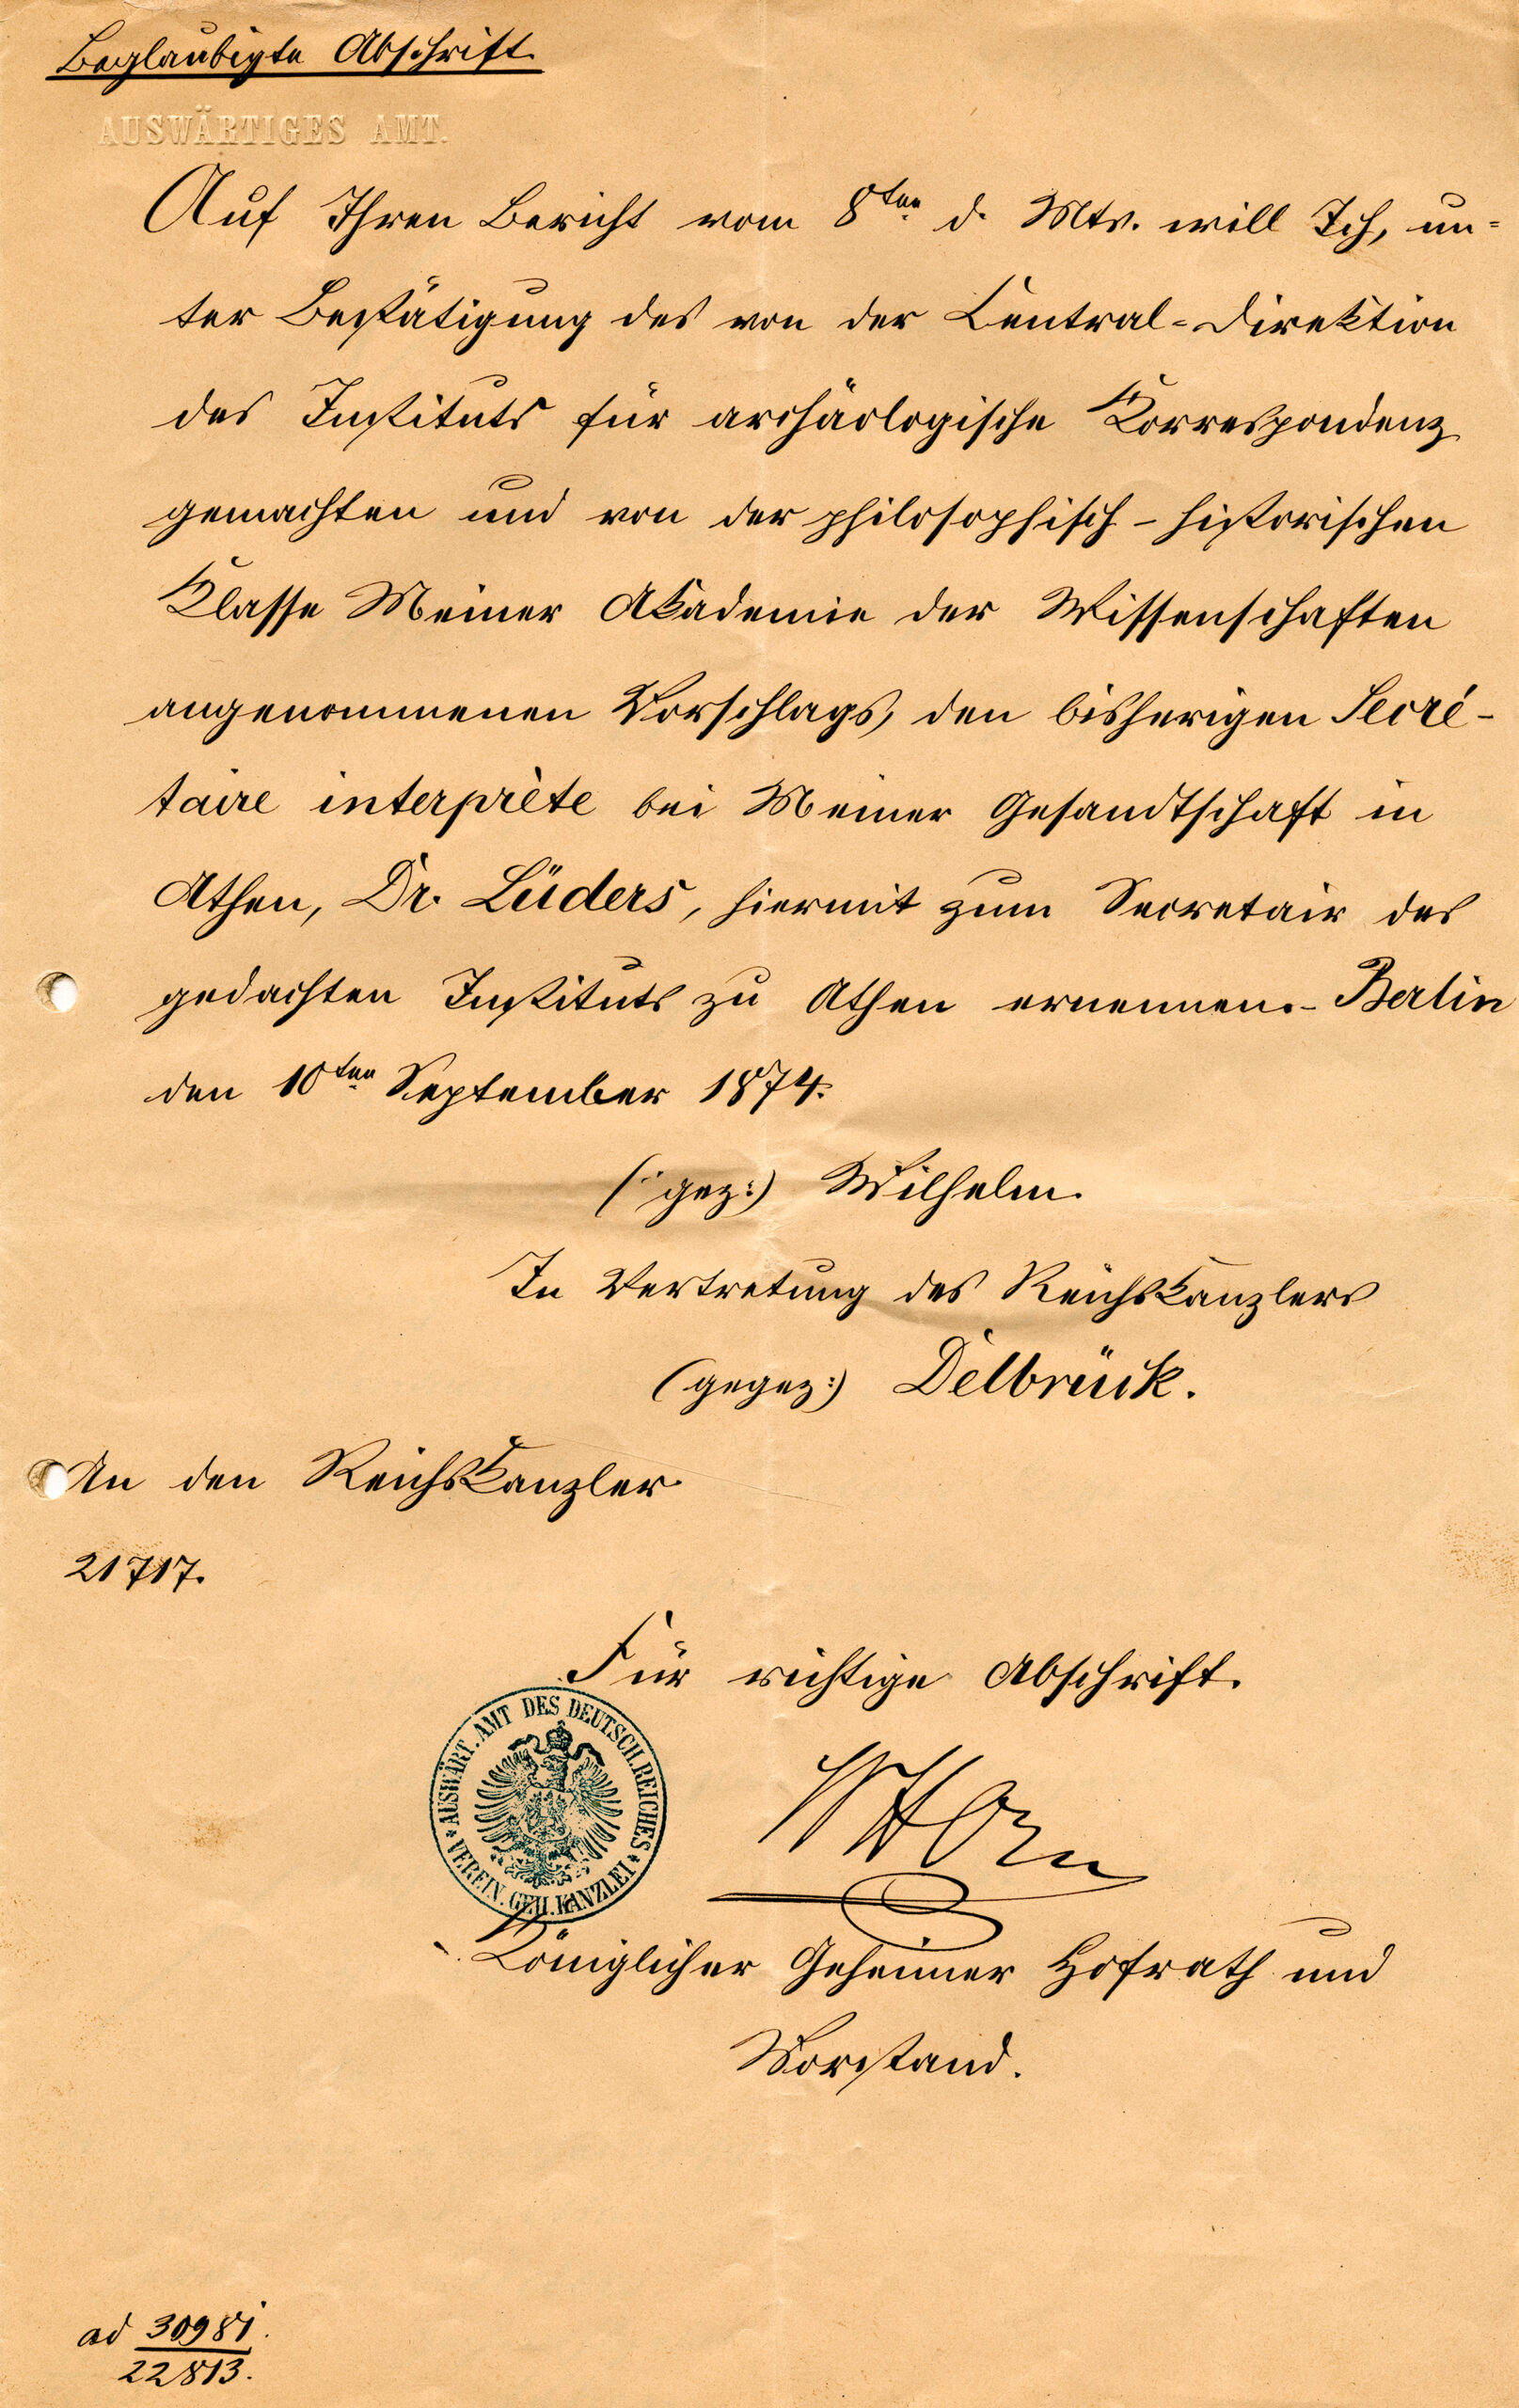 Beglaubigte Abschrift.
AUSWÄRTIGES AMT.
Auf Ihren Bericht vom 8ten d. Mts. will Ich, un=
ter Bestätigung des von der Central=Direktion
des Instituts für archäologische Korrespondenz
gemachten und von der philosophisch-historischen
Klasse Meiner Akademie der Wissenschaften
angenommenen Vorschlags, den bisherigen Secré-
taire interprète bei Meiner Gesandtschaft in
Athen, Dr. Lüders, hiermit zum Secretair des
gedachten Instituts zu Athen ernennen.- Berlin
den 10ten September 1874.
(: gez:) Wilhelm.
In Vertretung des Reichskanzlers
(gegez:) Delbrück.
An den Reichskanzler
21717.
Für richtige Abschrift.
AUSWÄRT. AMT DES DEUTSCH. REICHES
* VEREIN. GEH. KANZLEI *
Königlicher Geheimer Hofrath und
Vorstand.
ad 30981.
22813.